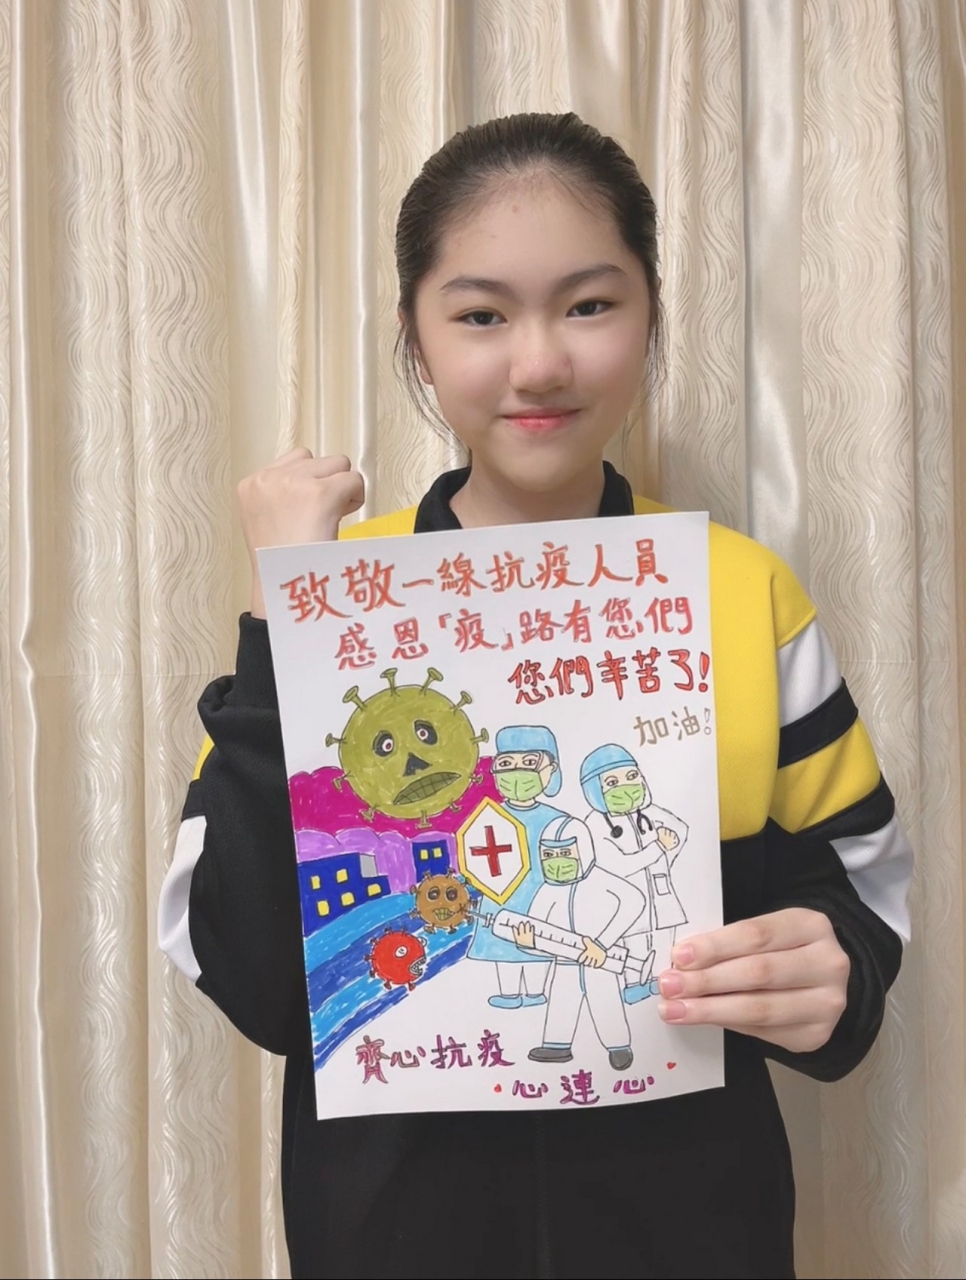 致敬一線抗疫人員
感恩「疫」路有您們
您們辛苦了!
加油!
齊心抗疫
心連心